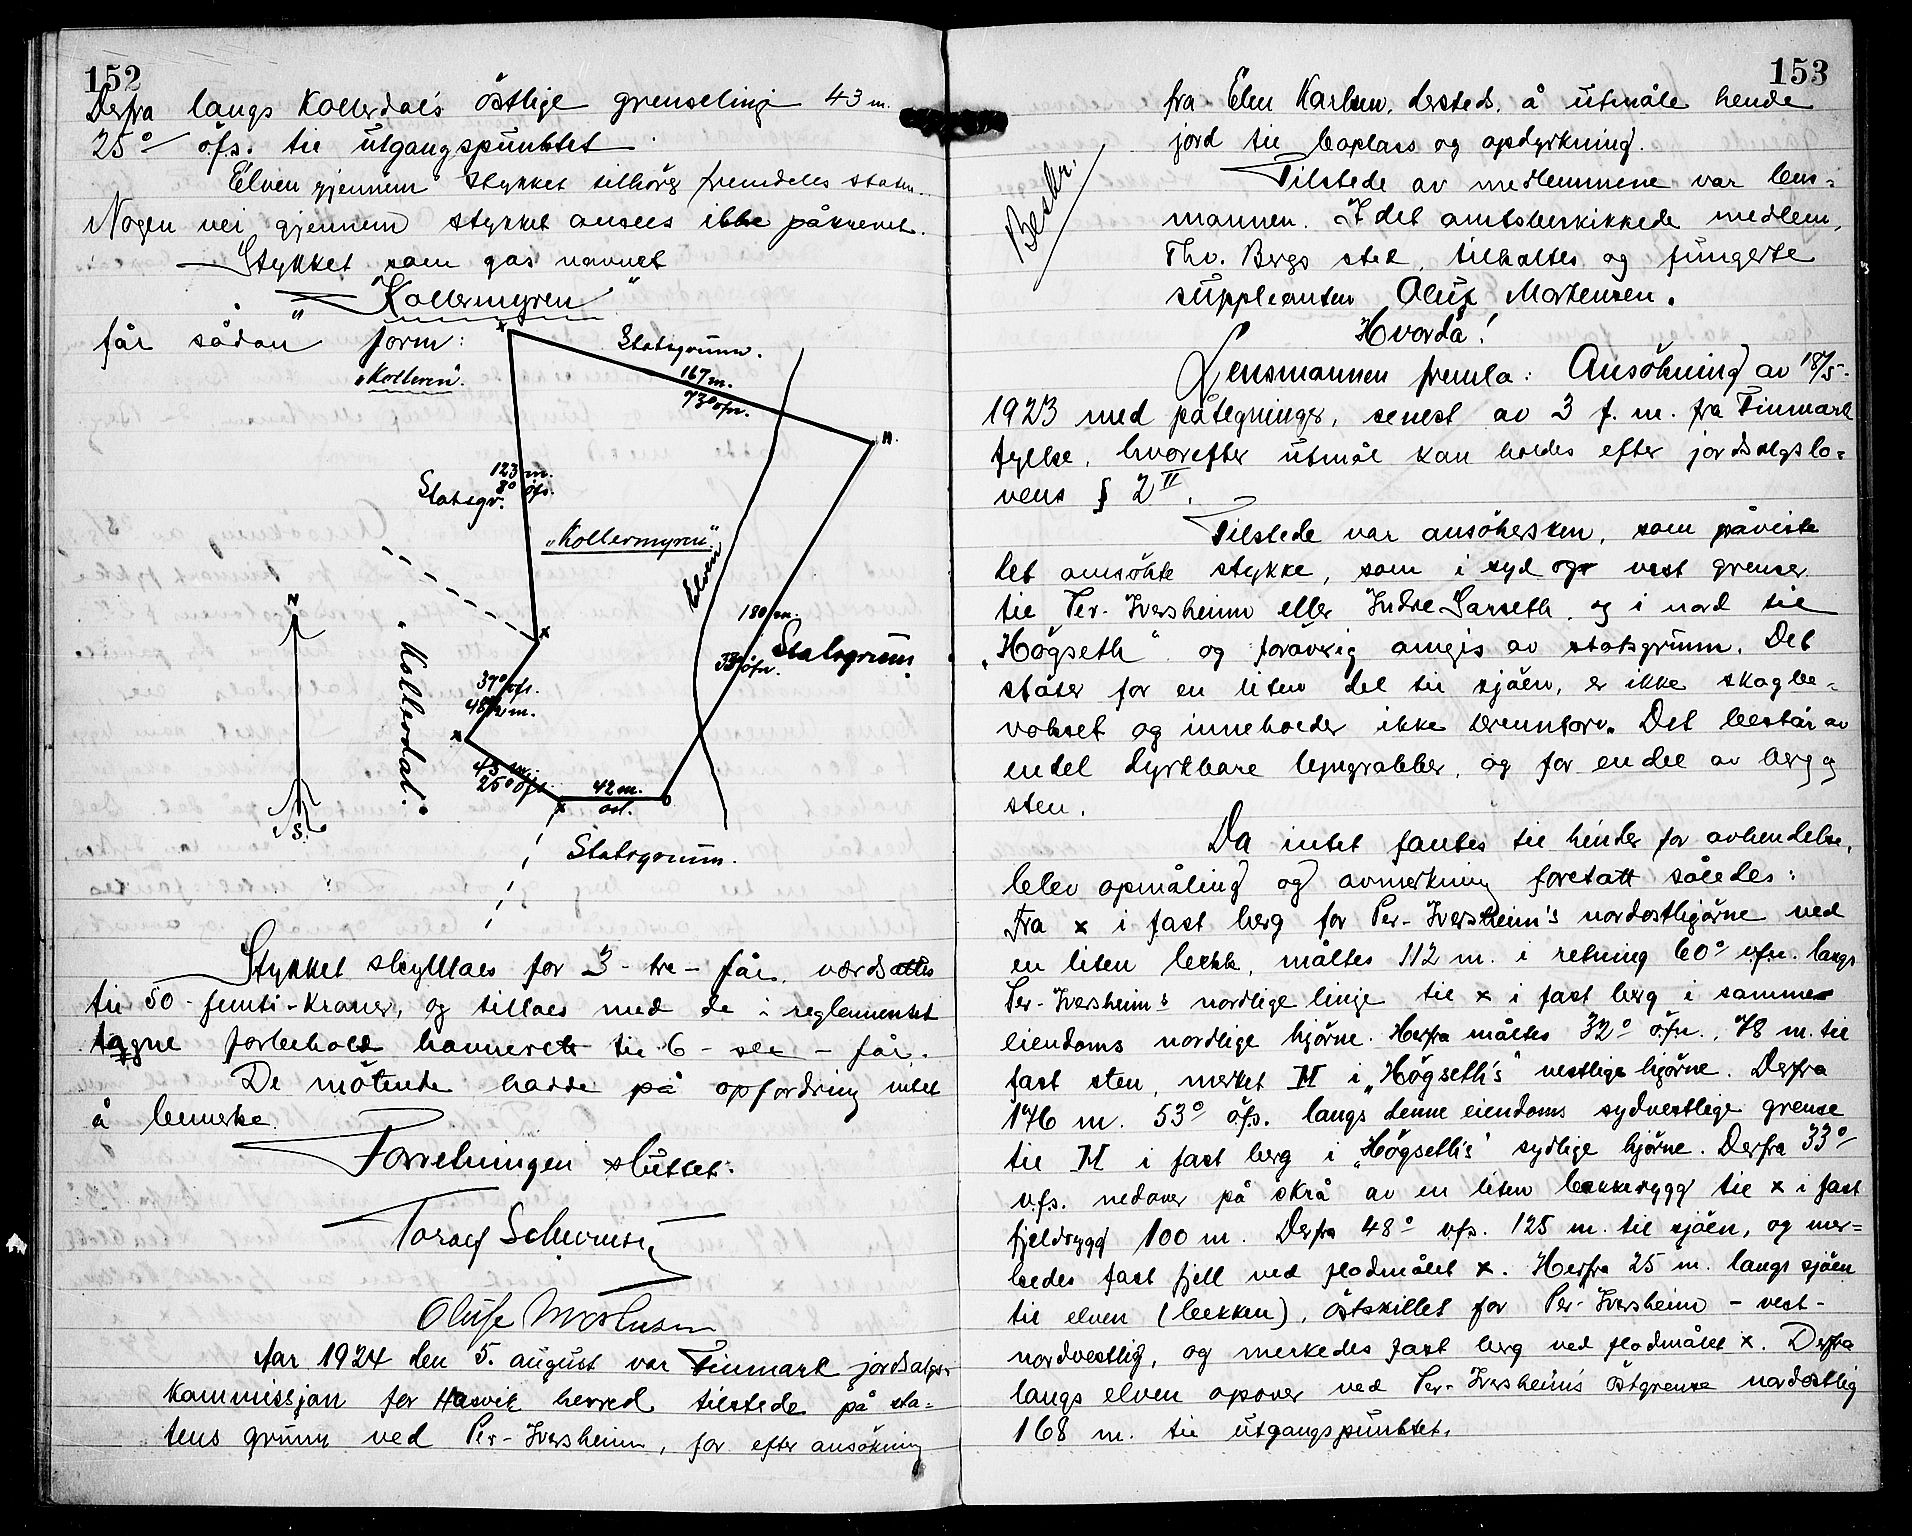 152
Derfra langs Kollerdal's östlige grenselinje 43 m.
25° öfs. til utgangspunktet.
Elven gjennem stykket tilhörer fremdeles staten.
Nogen vei gjennem stykket ansees ikke påkrevet.
Stykket som gas navnet
"Kollermyren"
får sådan form:
Statsgrunn.
"Kolleren".
167 m.
73° ofn.
H.
123 m.
8° öfs.
Statsgr.
"Kollermyren".
Elven
N
180 m.
33° öfn.
Statsgrunn.
"Kollerdal".
37° vfs.
48½ m.
43 m.
25° öfs.
42 m.
ost.
S.
Statsgrunn.
Stykket skyldlaes for 3 - tre - får, værdsattes
til 50 - femti - kroner, og tillaes med de i reglementet
tagne forbehold til 6 - sex - får.
De mötende hadde på opfordring intet
å bemerke.
Forretningen sluttet.
Olufe Mortensen
Aar 1924 den 5. august var Finmark jordsalgs-
kommissjon for Hasvik herred tilstede på sta-
tens grunn ved Per-Iversheim, for efter ansökning
153
fra Elen Karlsen, dersteds, å utmåle hende
jord til boplass og opdyrkning.
Beskr.
Tilstede av medlemmene var lens-
mannen. I det amtsbeskikkede medlem,
Thv. Bergs sted, tilkaltes og fungerte
suppleanten Oluf Mortensen.
Hvorda!
Lensmannen fremla: Ansökning av 18/5-
1923 med påtegninger, senest av 3 f. m. fra Finmark
fylke, hvorefter utmål kan holdes efter jordsalgslo-
vens § 2 II.
Tilstede var ansökersken, som påviste
det ansökte stykke, som i syd og vest grenser
til Per-Iversheim eller Indre Sarseth, og i nord til
"Högseth" og forövrig omgis av statsgrunn. Det
stöter for en liten del til sjöen, er ikke skogbe-
vokset og inneholder ikke brenntorv. Det består av
endel dyrkbare lyngrabber, og for en del av berg og
sten.
Da intet fantes til hinder for avhendelse,
blev opmåling og avmerkning foretatt således:
Fra x i fast berg for Per-Iversheim's nordosthjörne ved
en liten bekk, måltes 112 m. i retning 60° vfn. langs
Per-Iversheim's nordlige linje til x i fast berg i samme
eiendoms nordlige hjörne. Herfra måltes 32° öfn., 78 m. til
fast sten, merket H i "Högseth's" vestlige hjörne. Derfra
176 m. 53° öfs. langs denne eiendoms sydvestlige grense
til H i fast berg i "Högseth's" sydlige hjörne. Derfra 33°
vfs. nedover på skrå av en liten bakkerygg til x i fast
fjeldrygg 100 m. Derfra 48° vfs. 125 m. til sjöen, og mer-
kedes fast fjell ved flodmålet x. Herfra 25 m. langs sjöen
til elven (bekken), östskillet for Per-Iversheim - vest-
nordvestlig, og merkedes fast berg ved flodmålet x. Derfra
langs elven opover ved Per-Iversheim's östgrense nordostlig
168 m. til utgangspunktet.